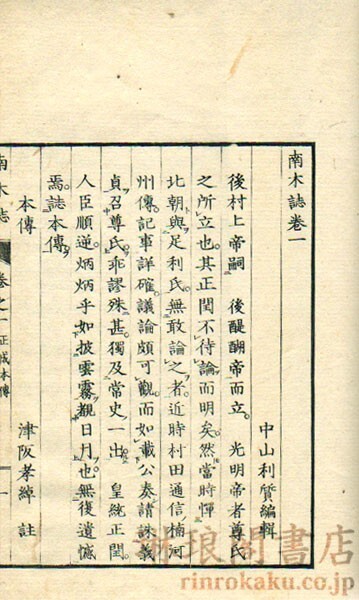 南木誌卷一
中山利質編輯
後村上帝嗣　後醍醐帝而立。　光明帝者尊氏
之所立也。其正閏不待論而明矣。然當時憚
北朝與足利氏。無敢論之者。近時村田通信楠河
州傳。記事詳確。議論頗可觀。而如載公奏請誅義
貞召尊氏。乖謬殊甚。獨及常史一出。　皇統正閏。
人臣順逆。炳炳乎如披雲霧覩日月也。無復遺憾
焉。誌本傳。
本傳
津阪孝綽　註
南木誌
卷之一
正成本傳
一
琳琅閣書店
rinrokaku.co.jp